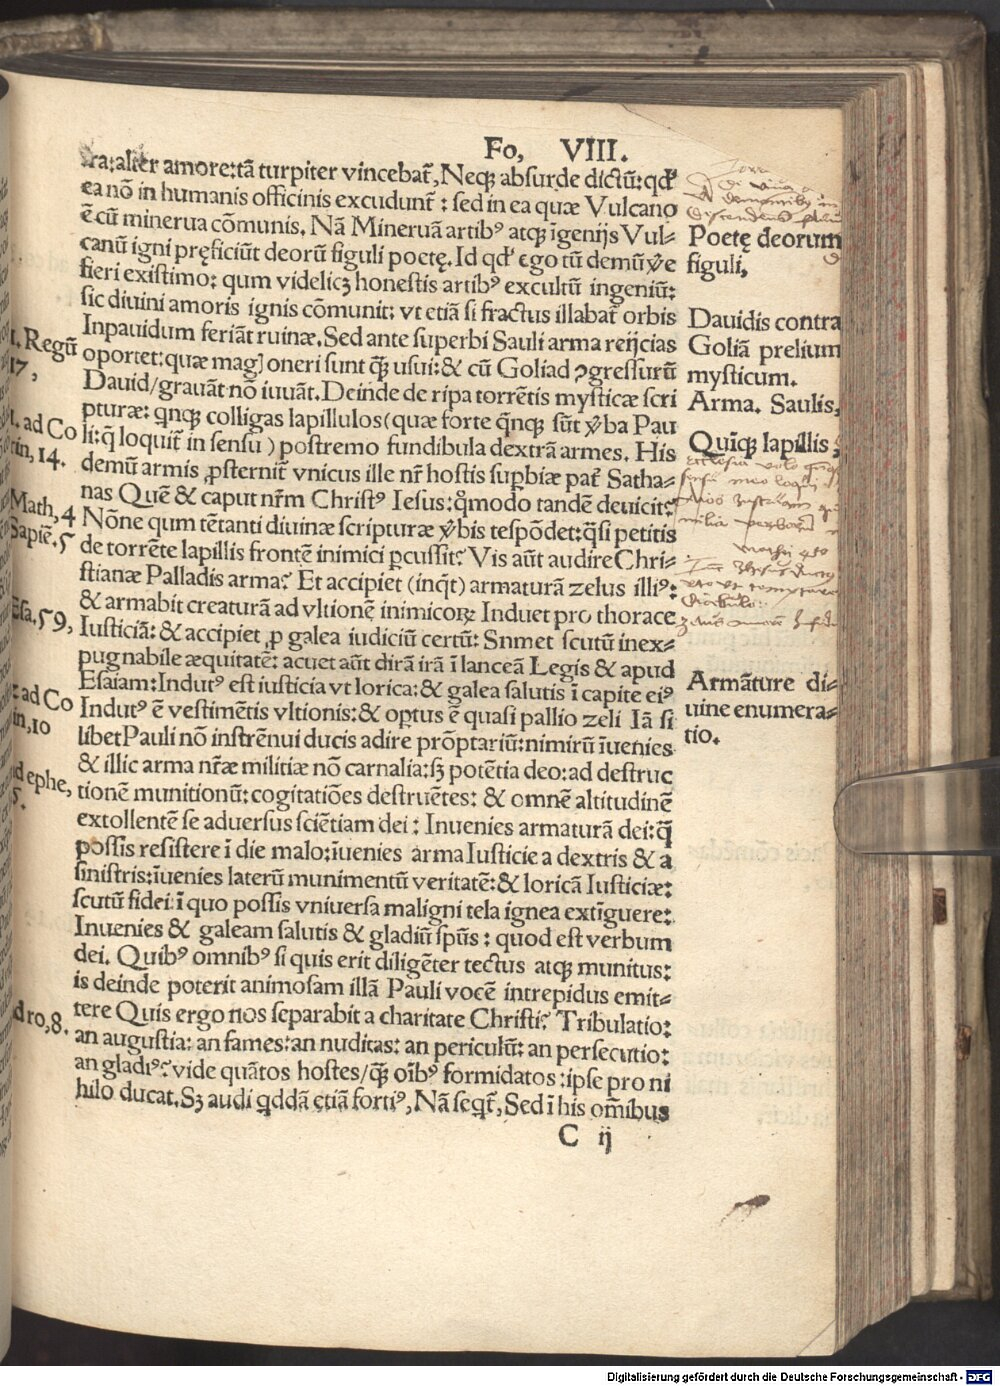 Fo, VIII.
tra:alter amore:tã turpiter vincebat̃, Neqꝫ absurde dictũ: qđ
ea nõ in humanis officinis excudunt̃ : sed in ea quæ Vulcano
ẽ cũ minerua cõmunis. Nã Mineruã artibꝰ atqꝫ ĩgenijs Vul⸗
canũ igni pręficiũt deorũ figuli poetę. Id qđ ego tũ demũ ꝟe
fieri existimo: qum videlicꝫ honestis artibꝰ excultũ ingeniũ:
sic diuini amoris ignis cõmunit: vt etiã si fractus illabat̃ orbis
Inpauidum feriãt ruinæ. Sed ante superbi Sauli arma reijcias
oportet: quæ mag] oneri sunt q̃ꝫ usui: & cũ Goliad ꝓgressurũ
Dauid/grauãt nõ iuuãt. Deinde de ripa torrẽtis mysticæ scri
pturæ: qnqꝫ colligas lapillulos (quæ forte q̃nqꝫ sũt ꝟba Pau
li: q̃ loquit̃ in sensu ) postremo fundibula dextrã armes. His
demũ armis ꝓsternit̃ vnicus ille nr̃ hostis supbiæ pat̃ Satha⸗
nas Quẽ & caput nr̃m Christꝰ Iesus: q̃modo tandẽ deuicit?
Nõne qum tẽtanti diuinæ scripturæ ꝟbis respõdet: q̃si petitis
de torrẽte lapillis frontẽ inimici ꝑcussit? Vis aũt audire Chri⸗
stianæ Palladis arma? Et accipiet (inq̃t) armaturã zelus illiꝰ:
& armabit creaturã ad vltionẽ inimicoꝝ Induet pro thorace
Iusticiã: & accipiet ꝓ galea iudiciũ certũ: Snmet scutũ inex⸗
pugnabile æquitatẽ: acuet aũt dirã irã ĩ lanceã Legis & apud
Esaiam: Indutꝰ est iusticia vt lorica: & galea salutis ĩ capite eiꝰ
Indutꝰ ẽ vestimẽtis vltionis: & optus ẽ quasi pallio zeli Iã si
libet Pauli nõ instrẽnui ducis adire prõptariũ: nimirũ ĩuenies
& illic arma nr̃æ militiæ nõ carnalia: sꝫ potẽtia deo: ad destruc
tionẽ munitionũ: cogitatiões destruẽtes: & omnẽ altitudinẽ
extollentẽ se aduersus sciẽtiam dei : Inuenies armaturã dei: q̃
possis resistere ĩ die malo: ĩuenies arma Iusticie a dextris & a
sinistris: ĩuenies laterũ munimentũ veritatẽ: & loricã Iusticiæ:
scutũ fidei: ĩ quo possis vniuersa maligni tela ignea extĩguere:
Inuenies & galeam salutis & gladiũ spũs : quod est verbum
dei. Quibꝰ omnibꝰ si quis erit diligẽter tectus atqꝫ munitus:
is deinde poterit animosam illã Pauli vocẽ intrepidus emit⸗
tere Quis ergo nos separabit a charitate Christi? Tribulatio:
an augustia: an fames: an nuditas: an periculũ: an persecutio:
an gladiꝰ? vide quãtos hostes/q̃ꝫ oĩbꝰ formidatos : ipse pro ni
hilo ducat. Sꝫ audi qddã etiã fortiꝰ, Nã seqt̃, Sed ĩ his om̃ibus
C ij
Poetę deorum
figuli,
Dauidis contra
Goliã prelium
mysticum.
Arma. Saulis,
Quĩqꝫ lapillis
Armãture di⸗
uine enumera⸗
tio.
I. Regũ
17,
I. ad Co
rin, 14.
Math, 4
Sapiẽ. 5
Esa. 59,
ad Co
in, 10
d ephe,
5.
d ro, 8.
Digitalisierung gefördert durch die Deutsche Forschungsgemeinschaft - DFG